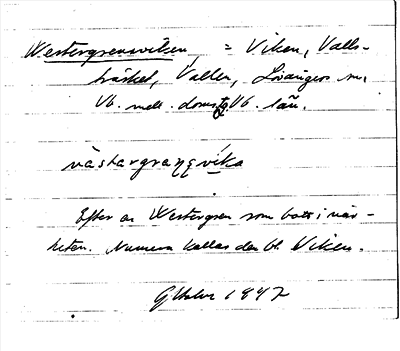 Westergrensviken = Viken, Valls-
träsket, Vallen, Lövångers sn,
Vb. mell. doms. Vb. län.
västargranssvika
Efter en Westergren som bott i när-
heten. Numera kallas den bl. Viken.
1947